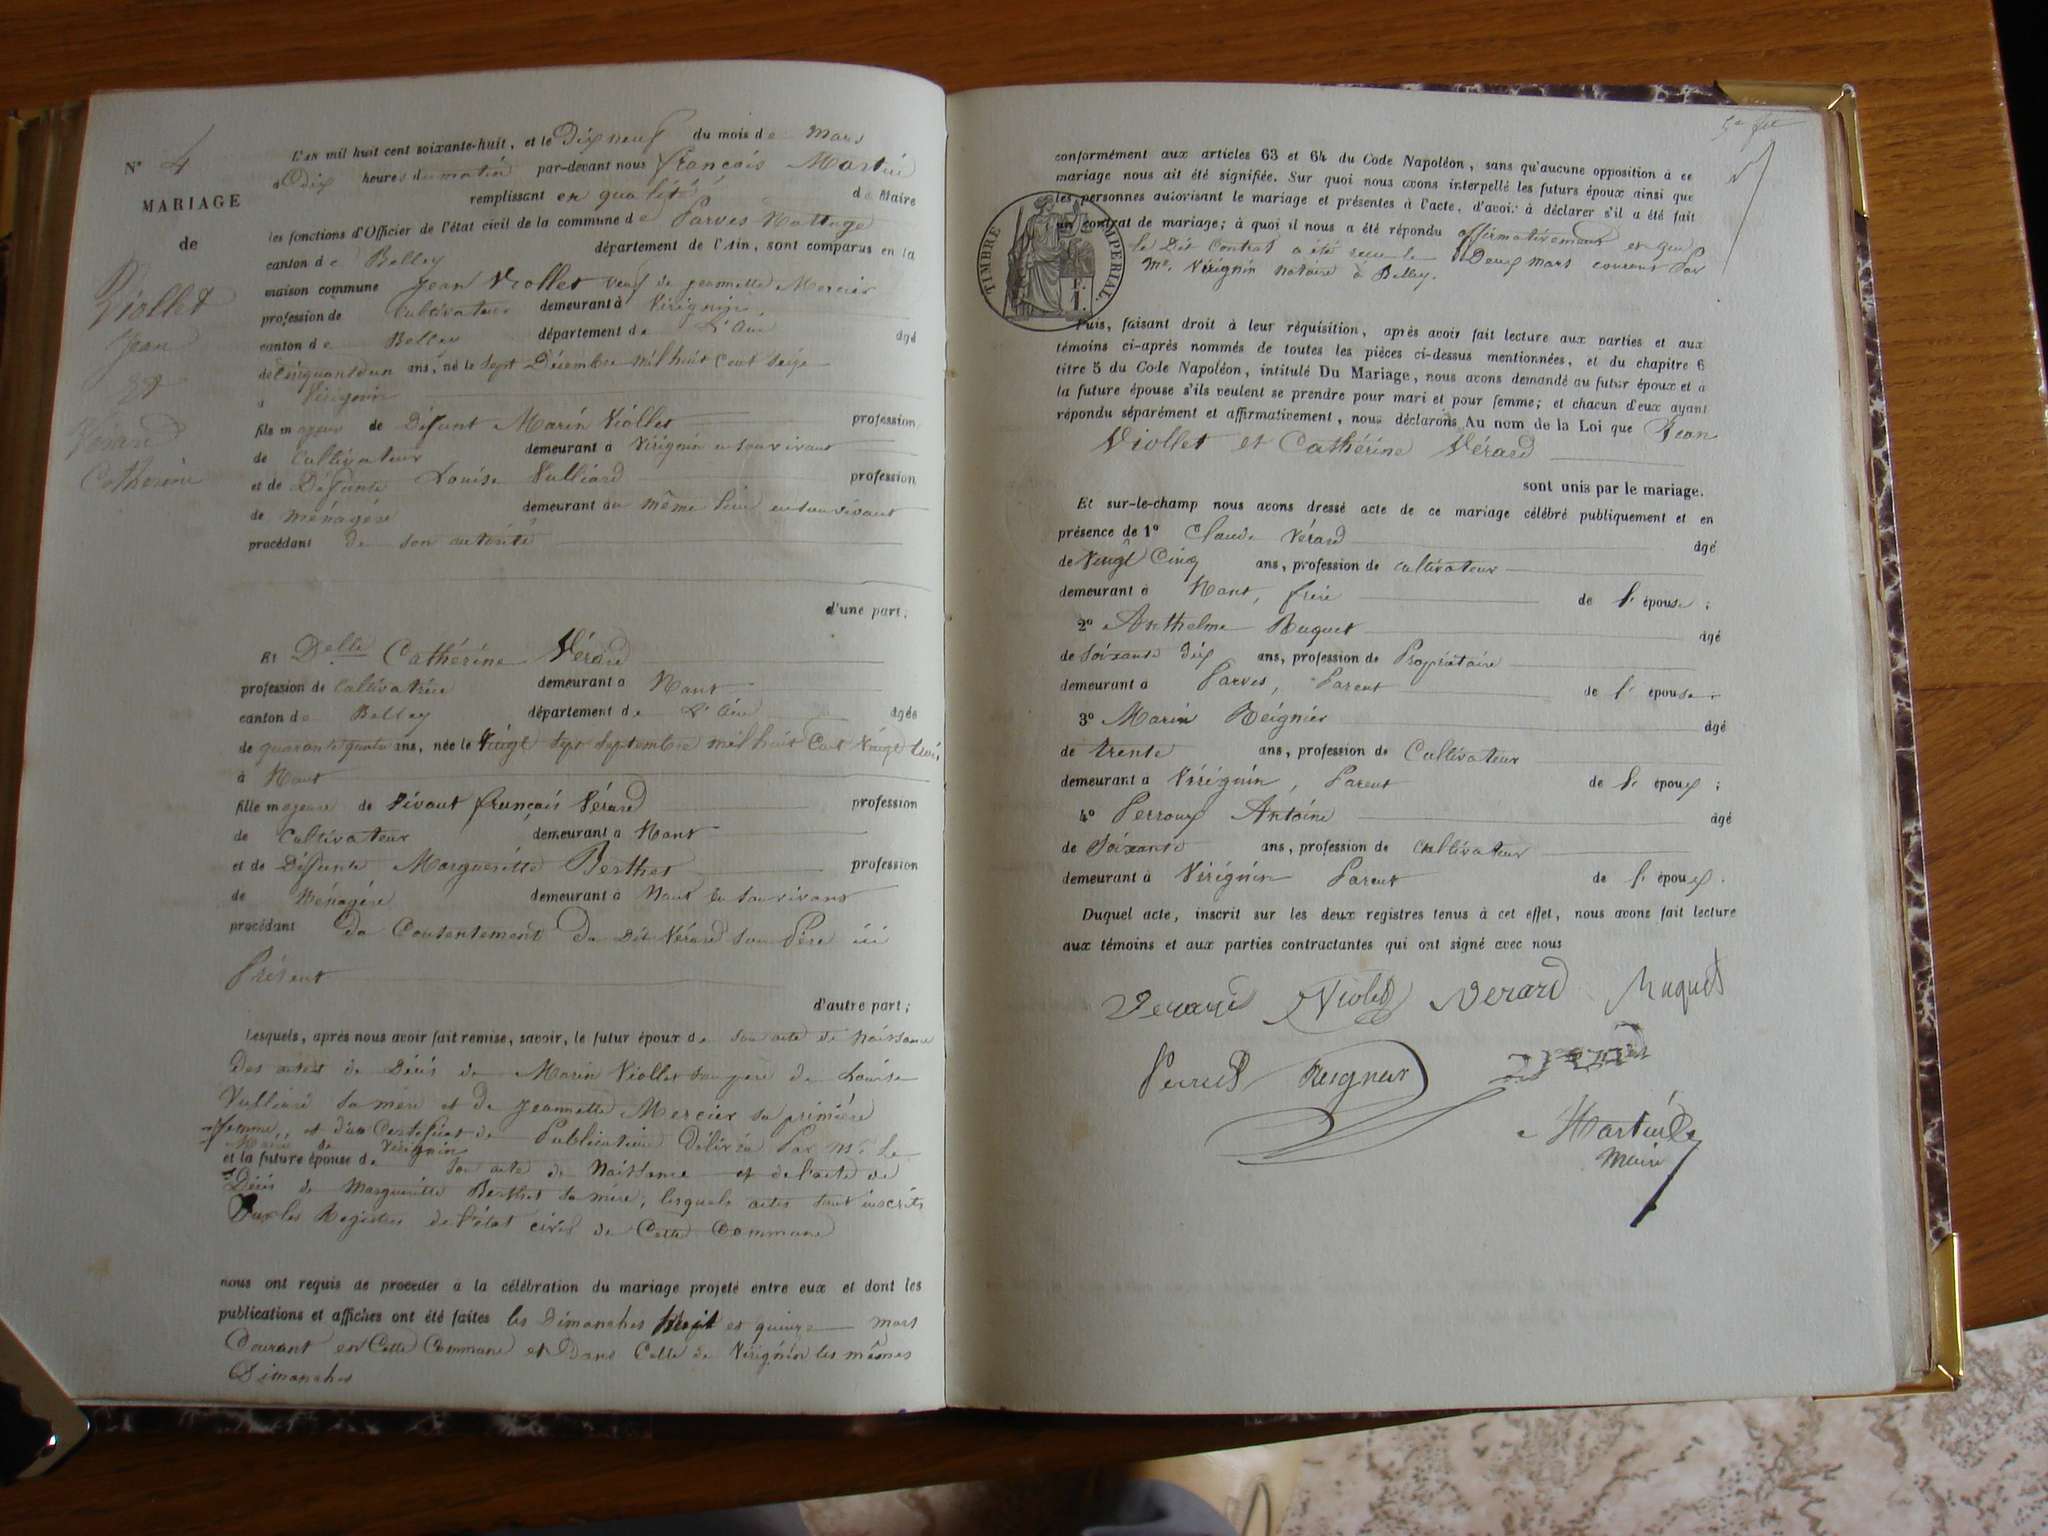 N° 4
MARIAGE
de
Viollet
Jean
et
Vérard
Catherine
L'an mil huit cent soixante-huit, et le Dix neuf du mois de Mars
à Dix heures du matin par-devant nous françois Martin
remplissant en qualité de Maire
les fonctions d'Officier de l'état civil de la commune de Parves Nattage
canton de Belley département de l'Ain, sont comparus en la
maison commune Jean Viollet veuf de jeannette Mercier
profession de Cultivateur demeurant à Virignin
canton de Belley département de L'Ain âgé
de Cinquante un ans, né le Sept Décembre mil huit Cent Seize
à Virignin
fils majeur de Défunt Marin Viollet profession
de Cultivateur demeurant à Virignin en son vivant
et de Défunte Louise Vulliard profession
de Ménagère demeurant au même lieu en son vivant
procédant de son autorité
d'une part;
Et Delle Cathérine Vérard
profession de Cultivatrice demeurant à Nant
canton de Belley département de L'Ain âgée
de quarante quatre ans, née le Vingt Sept Septembre mil huit Cent Vingt trois
à Nant
fille majeure de Vivant françois Vérard profession
de Cultivateur demeurant à Nant
et de Défunte Margueritte Berthet profession
de Ménagère demeurant à Nant en son vivant
procédant du Consentement du Dit Vérard son Père ici
Présent
d'autre part;
Lesquels, après nous avoir fait remise, savoir, le futur époux de son acte de Naissance
Des actes de Décès de Marin Viollet son père de Louise
Vulliard sa mère et de Jeannette Mercier sa première
femme, et d'un Certificat de Publication Délivré Par Mr. Le
Maire de Virignin
et la future épouse de son acte de Naissance et de l'acte de
Décès de Margueritte Berthet sa mère; lesquels actes sont inscrits
Dux les Registres de l'état civil de Cette Commune
nous ont requis de procéder à la célébration du mariage projeté entre eux et dont les
publications et affiches ont été faites les Dimanches huit et quinze mars
Courant en Cette Commune et Dans Celle de Virignin les mêmes
Dimanches
conformément aux articles 63 et 64 du Code Napoléon, sans qu'aucune opposition à ce
mariage nous ait été signifiée. Sur quoi nous avons interpellé les futurs époux ainsi que
les personnes autorisant le mariage et présentes à l'acte, d'avoir à déclarer s'il a été fait
un contrat de mariage; à quoi il nous a été répondu affirmativement et que
le Dit Contrat a été reçu le Deux Mars courent Par
Me. Virignin notaire à Belley.
TIMBRE IMPERIAL
Puis, faisant droit à leur réquisition, après avoir fait lecture aux parties et aux
témoins ci-après nommés de toutes les pièces ci-dessus mentionnées, et du chapitre 6
titre 5 du Code Napoléon, intitulé Du Mariage, nous avons demandé au futur époux et à
la future épouse s'ils veulent se prendre pour mari et pour femme; et chacun d'eux ayant
répondu séparément et affirmativement, nous déclarons Au nom de la Loi que Jean
Viollet et Cathérine Vérard
sont unis par le mariage.
Et sur-le-champ nous avons dressé acte de ce mariage célébré publiquement et en
présence de 1° Claude Vérard âgé
de Vingt Cinq ans, profession de cultivateur
demeurant à Nant, frère de l'épouse;
2° Anthelme Ruquet âgé
de Soixante dix ans, profession de Propriétaire
demeurant à Parves, Parent de l'épouse.
3° Marin Reignier âgé
de trente ans, profession de Cultivateur
demeurant à Virignin, Parent de l'époux;
4° Perroux Antoine âgé
de Soixante ans, profession de cultivateur
demeurant à Virignin Parent de l'époux.
Duquel acte, inscrit sur les deux registres tenus à cet effet, nous avons fait lecture
aux témoins et aux parties contractantes qui ont signé avec nous
Verard Violet Verard Ruquet
Reignier
Martin
Maire